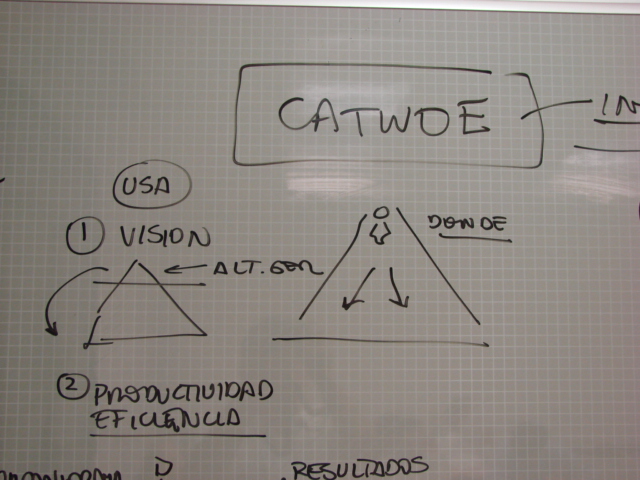 CATWOE
IN
USA
1 VISION
DONDE
ALT. GER
2 PRODUCTIVIDAD
EFICIENCIA
RESULTADOS